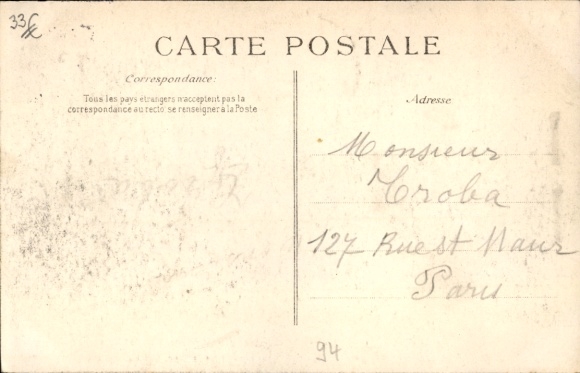 33
CARTE POSTALE
Correspondance:
Tous les pays étrangers n'acceptent pas la
correspondance au recto se renseigner à la Poste
Adresse
Monsieur
Troba
127 Rue st Maur
Paris
94